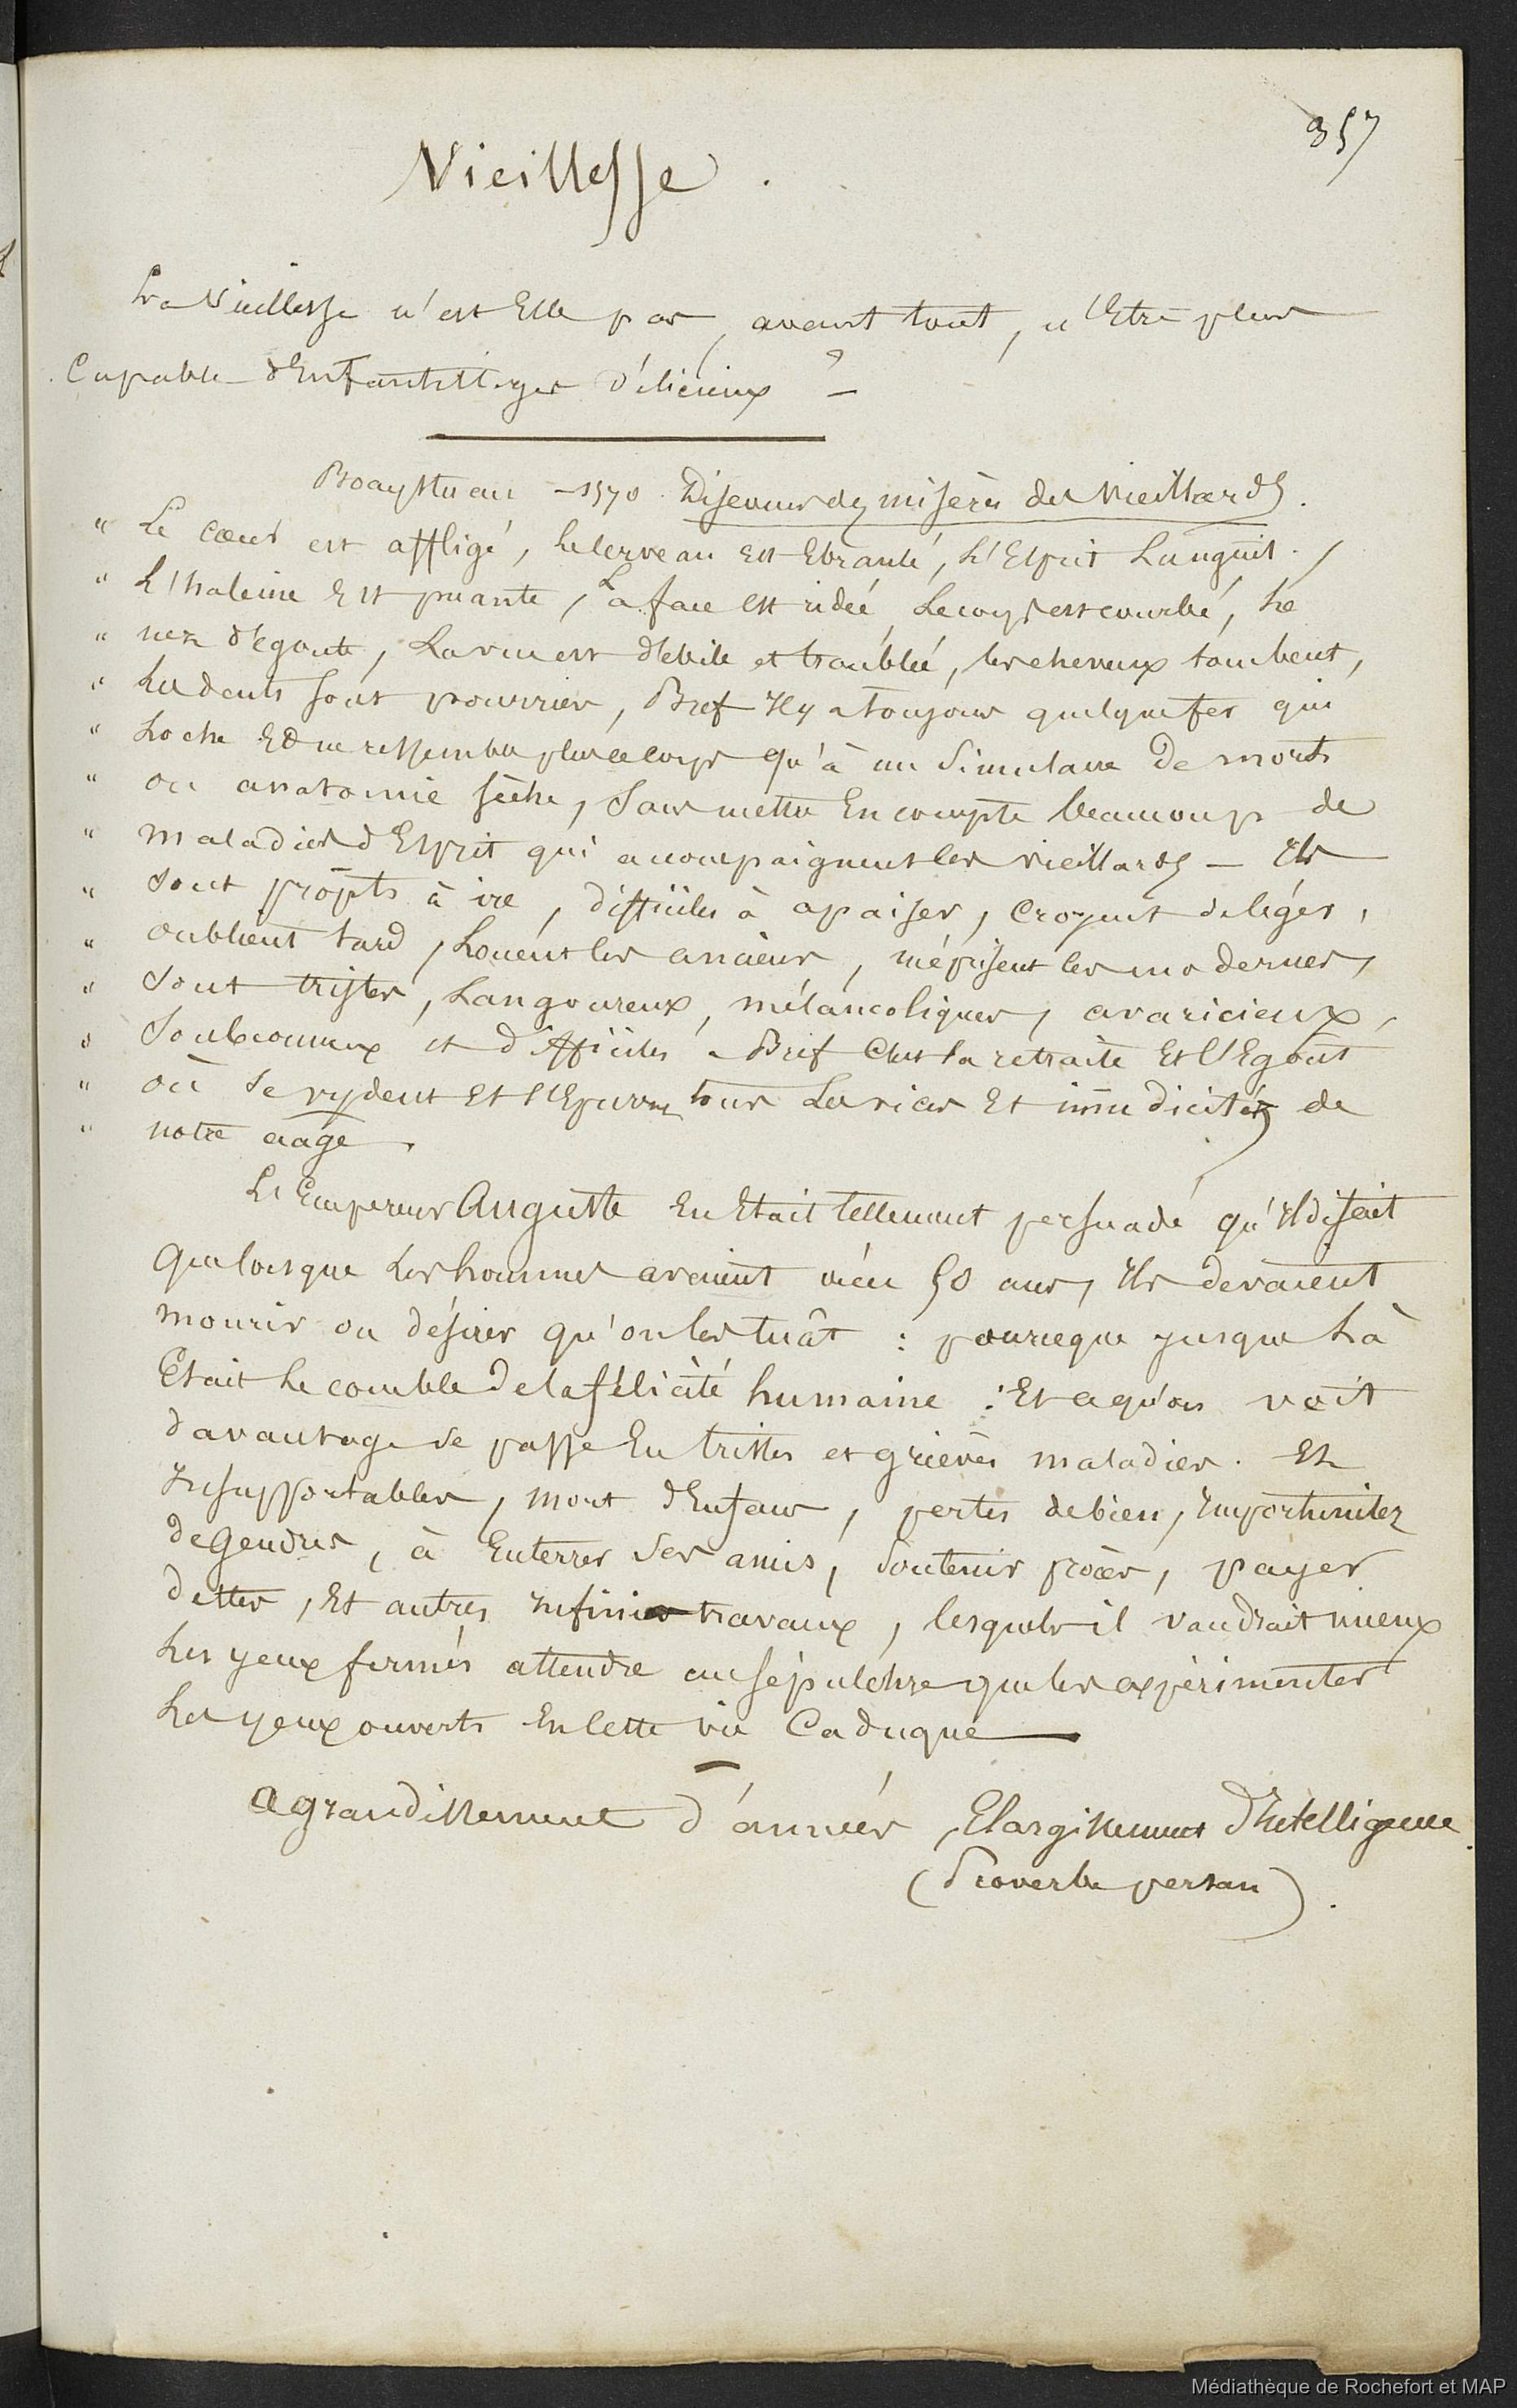 357
Vieillesse.
La Vieillesse n'est Elle pas, avant tout, n'Etre plus
Capable d'Enfantillages Délicieux ? –
Boaystuau – 1570. Discours des misères des vieillards.
" Le cœur est affligé, le cerveau est Ebranlé, L'Esprit Languit.,
" L'haleine Est puante, La face est ridée, Le corps est courbé, Le
" nez d'égoute, La vue est débile et troublée, les cheveux tombent,
" Les dents sont pourries, Bref Il y a toujours quelque fer qui
" Loche Et ne ressemble plus ce corps qu'à un Simulacre De morts
" ou anatomie sèche, Sans mettre En compte beaucoup de
" maladies d'Esprit qui accompaignent les vieillards – Ils
" Sont prōpts à ire, difficiles à apaiser, Croyent de léger,
" oublient tard, Louent les anciens, méprisent les modernes,
" Sont tristes, Langoureux, mélancoliques, avaricieux,
" Soubçonneux et difficiles – Bref C'est la retraite Et l'Egout
" où Se vydent Et s'Epurent tous Les vices Et im̄undicités de
" notre aage.
L'Empereur Auguste En Etait tellement persuadé qu'Il disait
Que lorsque Les hommes avaient vécu 50 ans, Ils devaient
mourir ou désirer qu'on les tuât : pource que jusque Là
Etait Le comble De la félicité humaine : Et ce qu'on voit
davantage se passe En tristes et griéves maladies. Et
Insupportables, mort d'Enfans, pertes de bien, Importunitez
De Gendres, à Enterrer Ses amis, Soutenir procès, payer
dettes, Et autres Infinis travaux, lesquels il vaudrait mieux
Les yeux fermés attendre au sépulchre que les expérimenter
Les yeux ouverts En cette vie Caduque —
Agrandissement d'années, Elargissement d'Intelligence.
(Proverbe persan).
Médiathèque de Rochefort et MAP